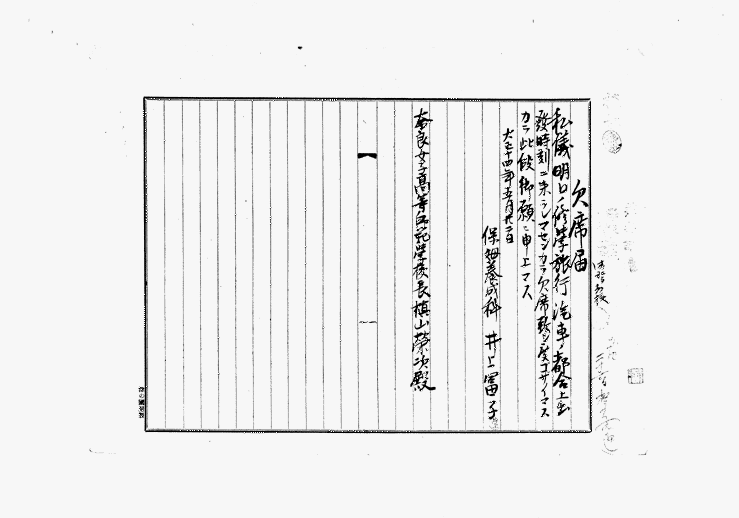 欠席届
私儀明日ノ修学旅行汽車ノ都合上出
發時刻ニ来ラレマセンカラ欠席致シ度ゴザイマス
カラ此段御願ニ申上マス
大正十四年五月廿二日
保姆養成科 井上冨子
奈良女子高等師範学校長槇山榮次殿